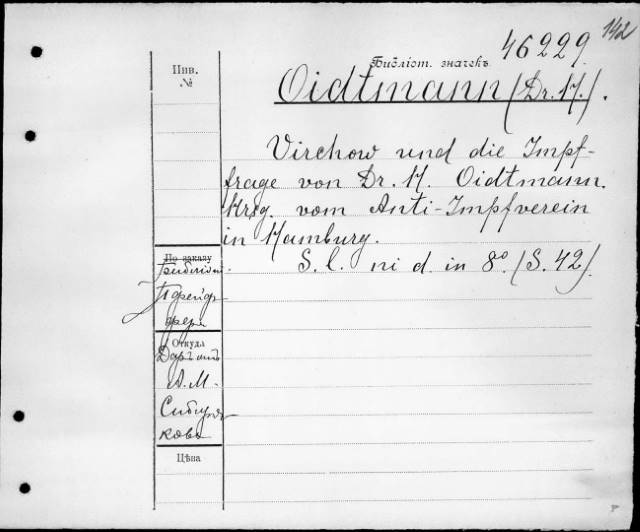 142
46229
Библіот. значекъ
Инв.
№
Oidtmann (Dr. H.).
Virchow und die Impf-
frage von Dr. H. Oidtmann.
Hrsg. vom Anti-Impfverein
in Hamburg.
S. l. ni d. in 8º. (S. 42).
По заказу
Пфейф-
фера
Откуда
Даръ отъ
А. М.
Сибиря-
кова
Цѣна